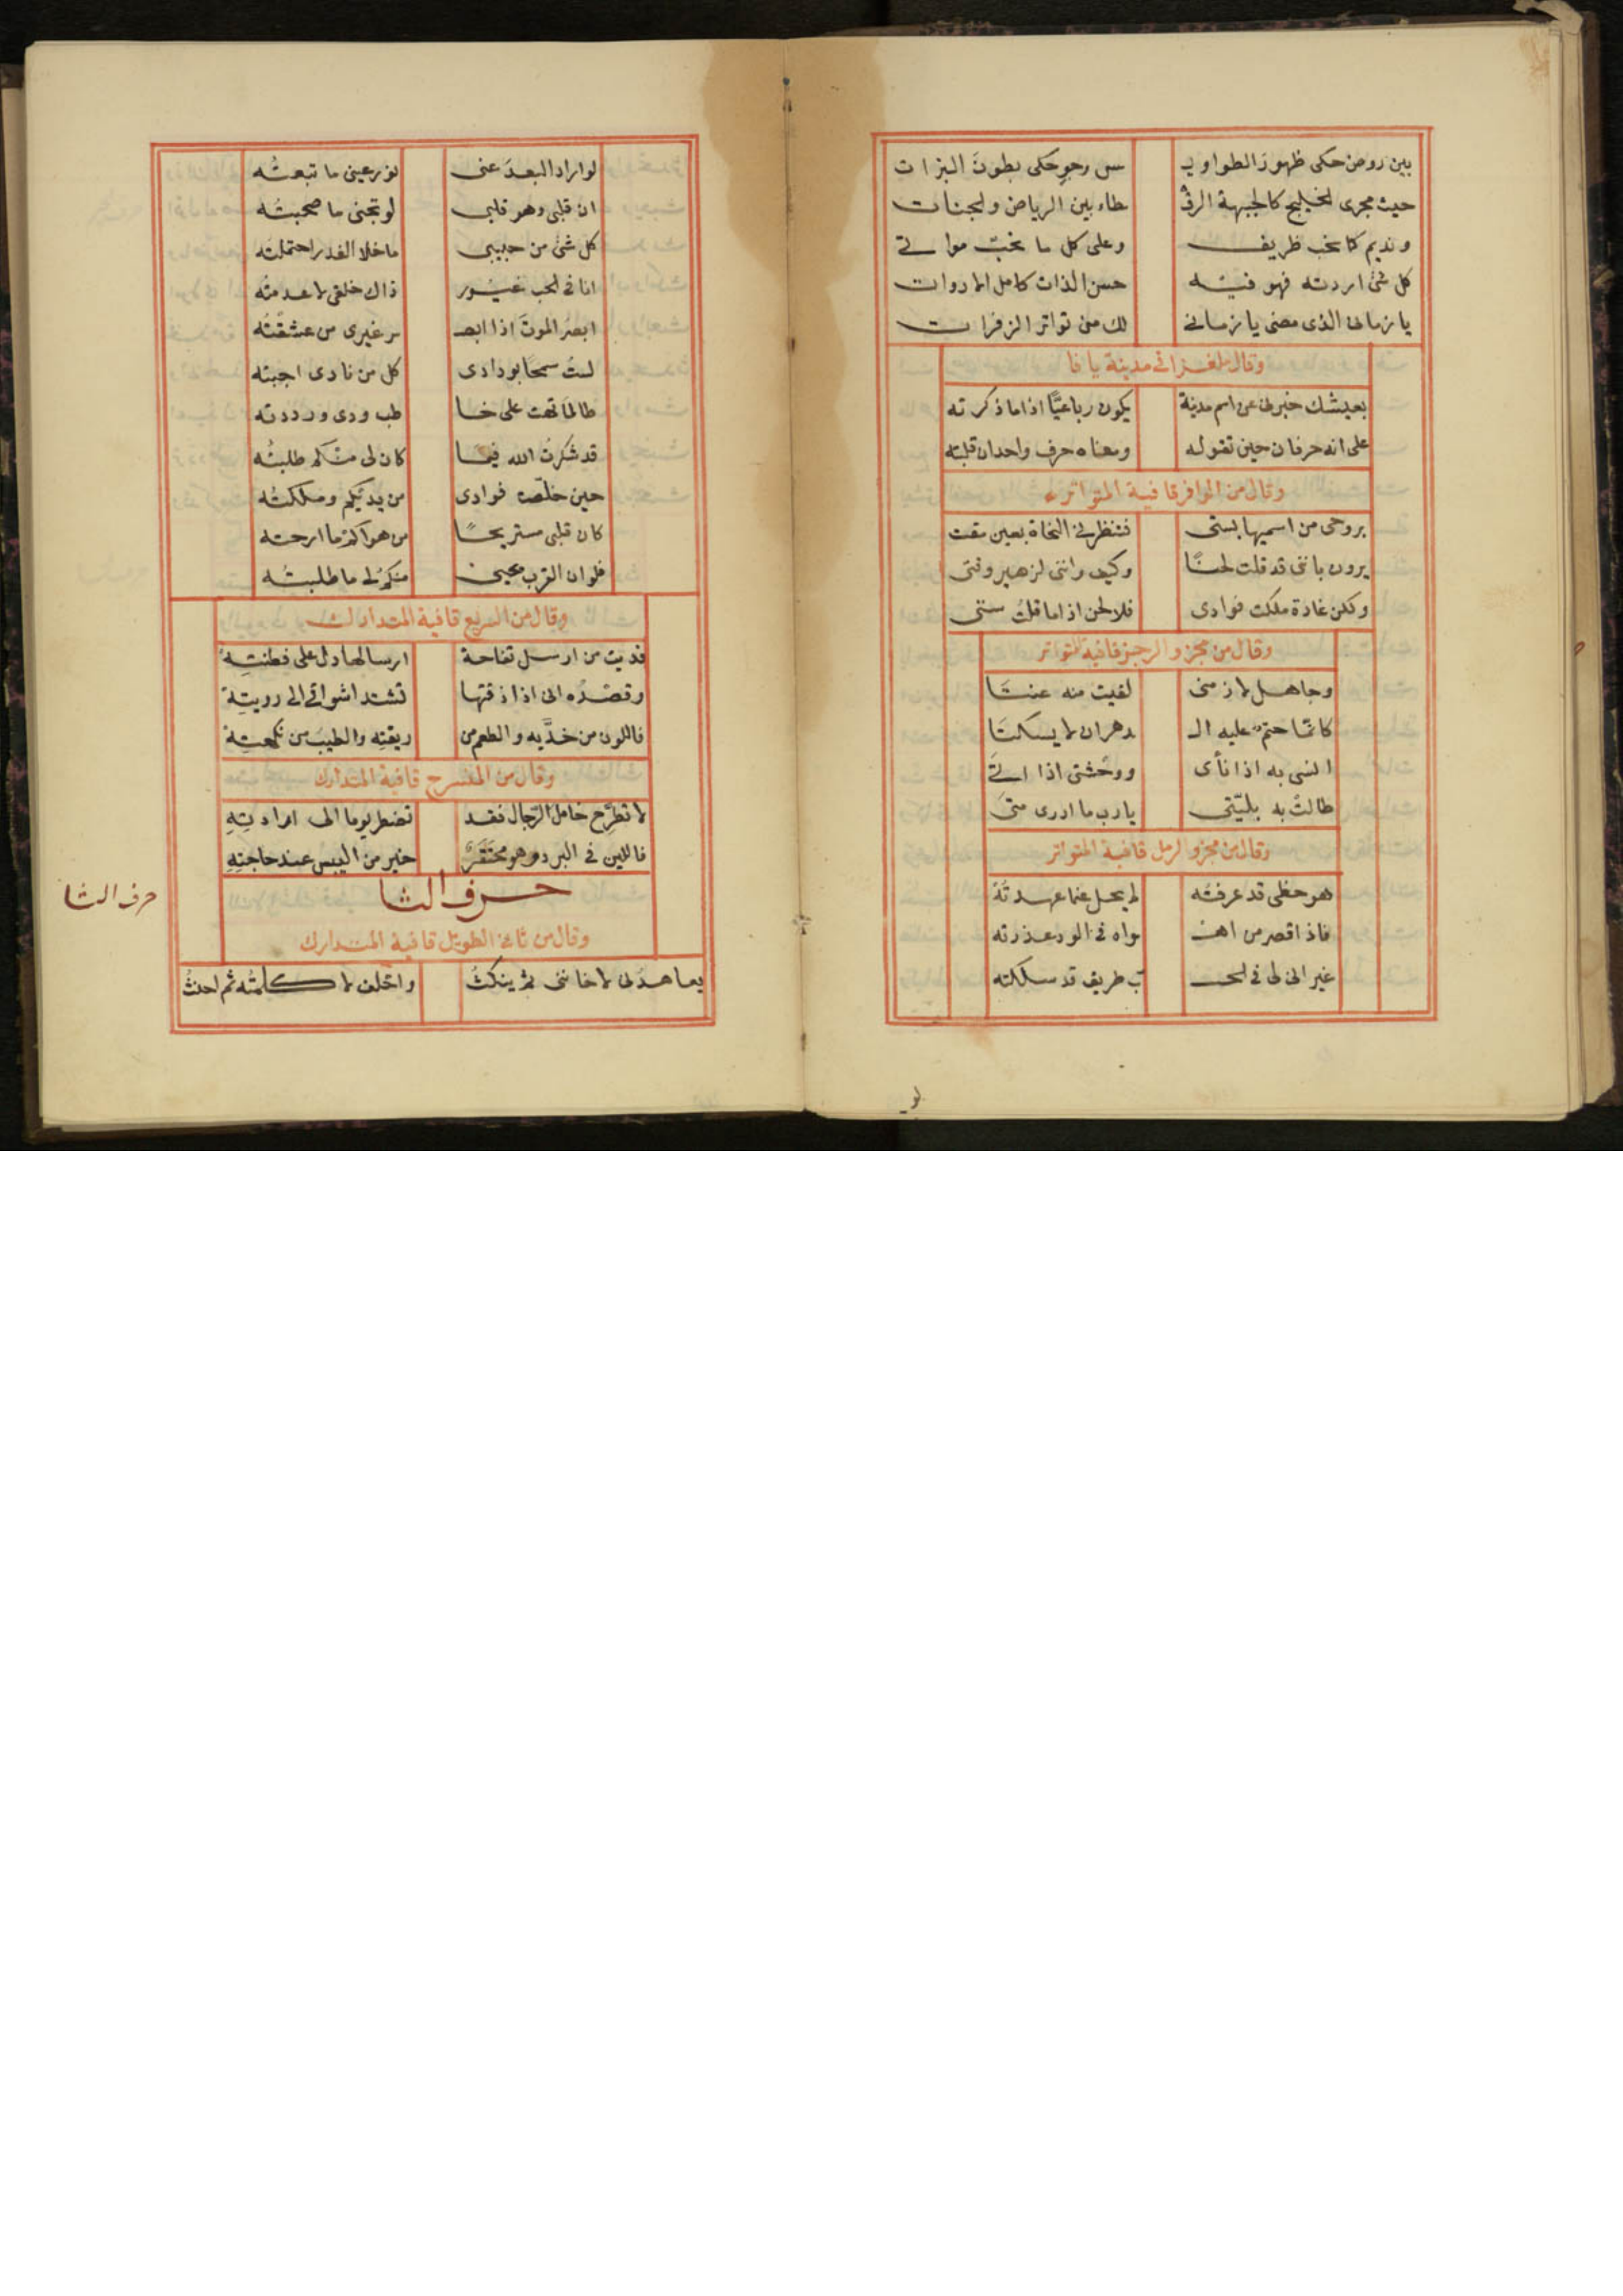 بين روض حكى ظهور الطواويـ سس وجو حكى بطون البزات
حيث مجرى الخليج كالحية الرقـ طاء بين الرياض والجنات
ونديم كما نحب ظريف وعلى كل ما نحب مواتى
كل شئ اردته فهو فيه حسن الذات كامل الادوات
يا زمانى الذى مضى يا زمانى لك منى تواتر الزفرات
وقال ملغزا فى مدينة يافا
بعيشك خبرنى عن اسم مدينة يكون رباعيًا اذا ما ذكرته
على انه حرفان حين تقوله ومعناه حرف واحد ان قلبته
وقال من الوافر قافية المتواتر
بروحى من اسميها بستى فتنظر لى النحاة بعين مقت
يرون باننى قد قلت لحنًا وكيف واننى لزهير وقتى
ولكن غادة ملكت فوادى فلا لحن اذا ما قلت ستى
وقال من مجزو الرجز قافية المتواتر
وجاهل لازمنى لقيت منه عنتَا
كانما حتم عليه الـ دهر ان لا يسكتَا
انسى به اذا نأى ووحشتى اذا اتى
طالت به بليّتى يا رب ما ادرى متى
وقال من مجزو الرمل قافية المتواتر
هو حظى قد عرفته لم يحل عما عهدته
فاذا قصر من اهـ ـواه فى الود عذرته
غير انى لى فى الحـ ـب طريق قد سلكته
لو
لو اراد البعدَ عنى نور عينى ما تبعتُه
ان قلبى وهو قلبى لو تجنى ما صحبتُه
كل شئ من حبيبى ما خلا الغدر احتملته
انا فى الحب غيور ذاك خلقى لا عدمته
ابصرُ الموتَ اذا ابصـ ـر غيرى من عشقتُه
لستُ سمحًا بودادى كل من نادى اجبته
طالما تهت على خا طب ودى ورددته
قد شكرت الله فيما كان لى منكم طلبتُه
حين خلّصت فوادى من يديكم وملكتُه
كان قلبى مستريحًا من هواكم ما ارحته
فلو ان القرب يحيينى منكم لى ما طلبتُه
وقال من السريع قافية المتدارك
فديت من ارسل تفاحة ارسالها دل على فطنتِهِ
وقصده انى اذا ذقتها تشتد اشواقى الى رويتِه
فاللون من خدَّيه والطعم من ريقتِه والطيب من نكهتِه
وقال من المنسرح قافية المتدارك
لا تطَّرح خامل الرجال فقد تضطر يوما الى ارادتِهِ
فاللين فى البرد وهو محتقَرٌ خير من اليبس عند حاجتِهِ
حرف الثا
حرف الثا
وقال من ثانى الطويل قافية المتدارك
يعاهدُنى لا خاننى ثم ينكثُ واحلف لا كلمتُه ثم احنثُ